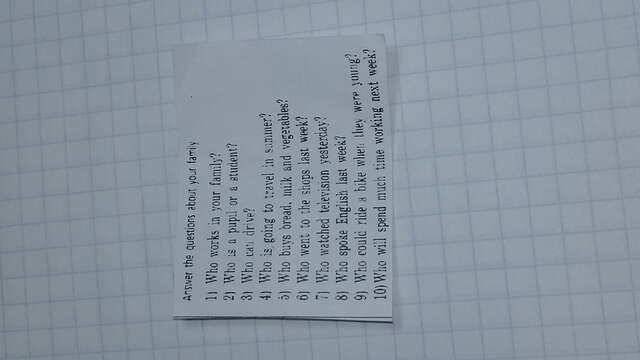 Answer the questions about your family
1) Who works in your family?
2) Who is a pupil or a student?
3) Who can drive?
4) Who is going to travel in summer?
5) Who buys bread, milk and vegetables?
6) Who went to the shops last week?
7) Who watched television yesterday?
8) Who spoke English last week?
9) Who could ride a bike when they were young?
10) Who will spend much time working next week?